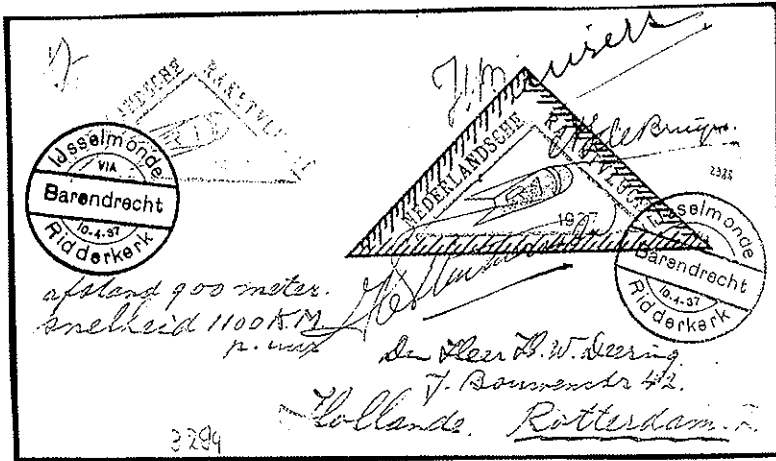 RAKETVLUCHT
IJsselmonde
VIA
Barendrecht
10.4.37
Ridderkerk
NEDERLANDSCHE
193
de Bruijn.
IJsselmonde
Barendrecht
10.4.37
Ridderkerk
afstand 900 meter.
snelheid 1100 K.M.
p. uur
Den Heer H. W. Deering
J. Bouwenstr 42.
Hollande. Rotterdam. Z.
3294